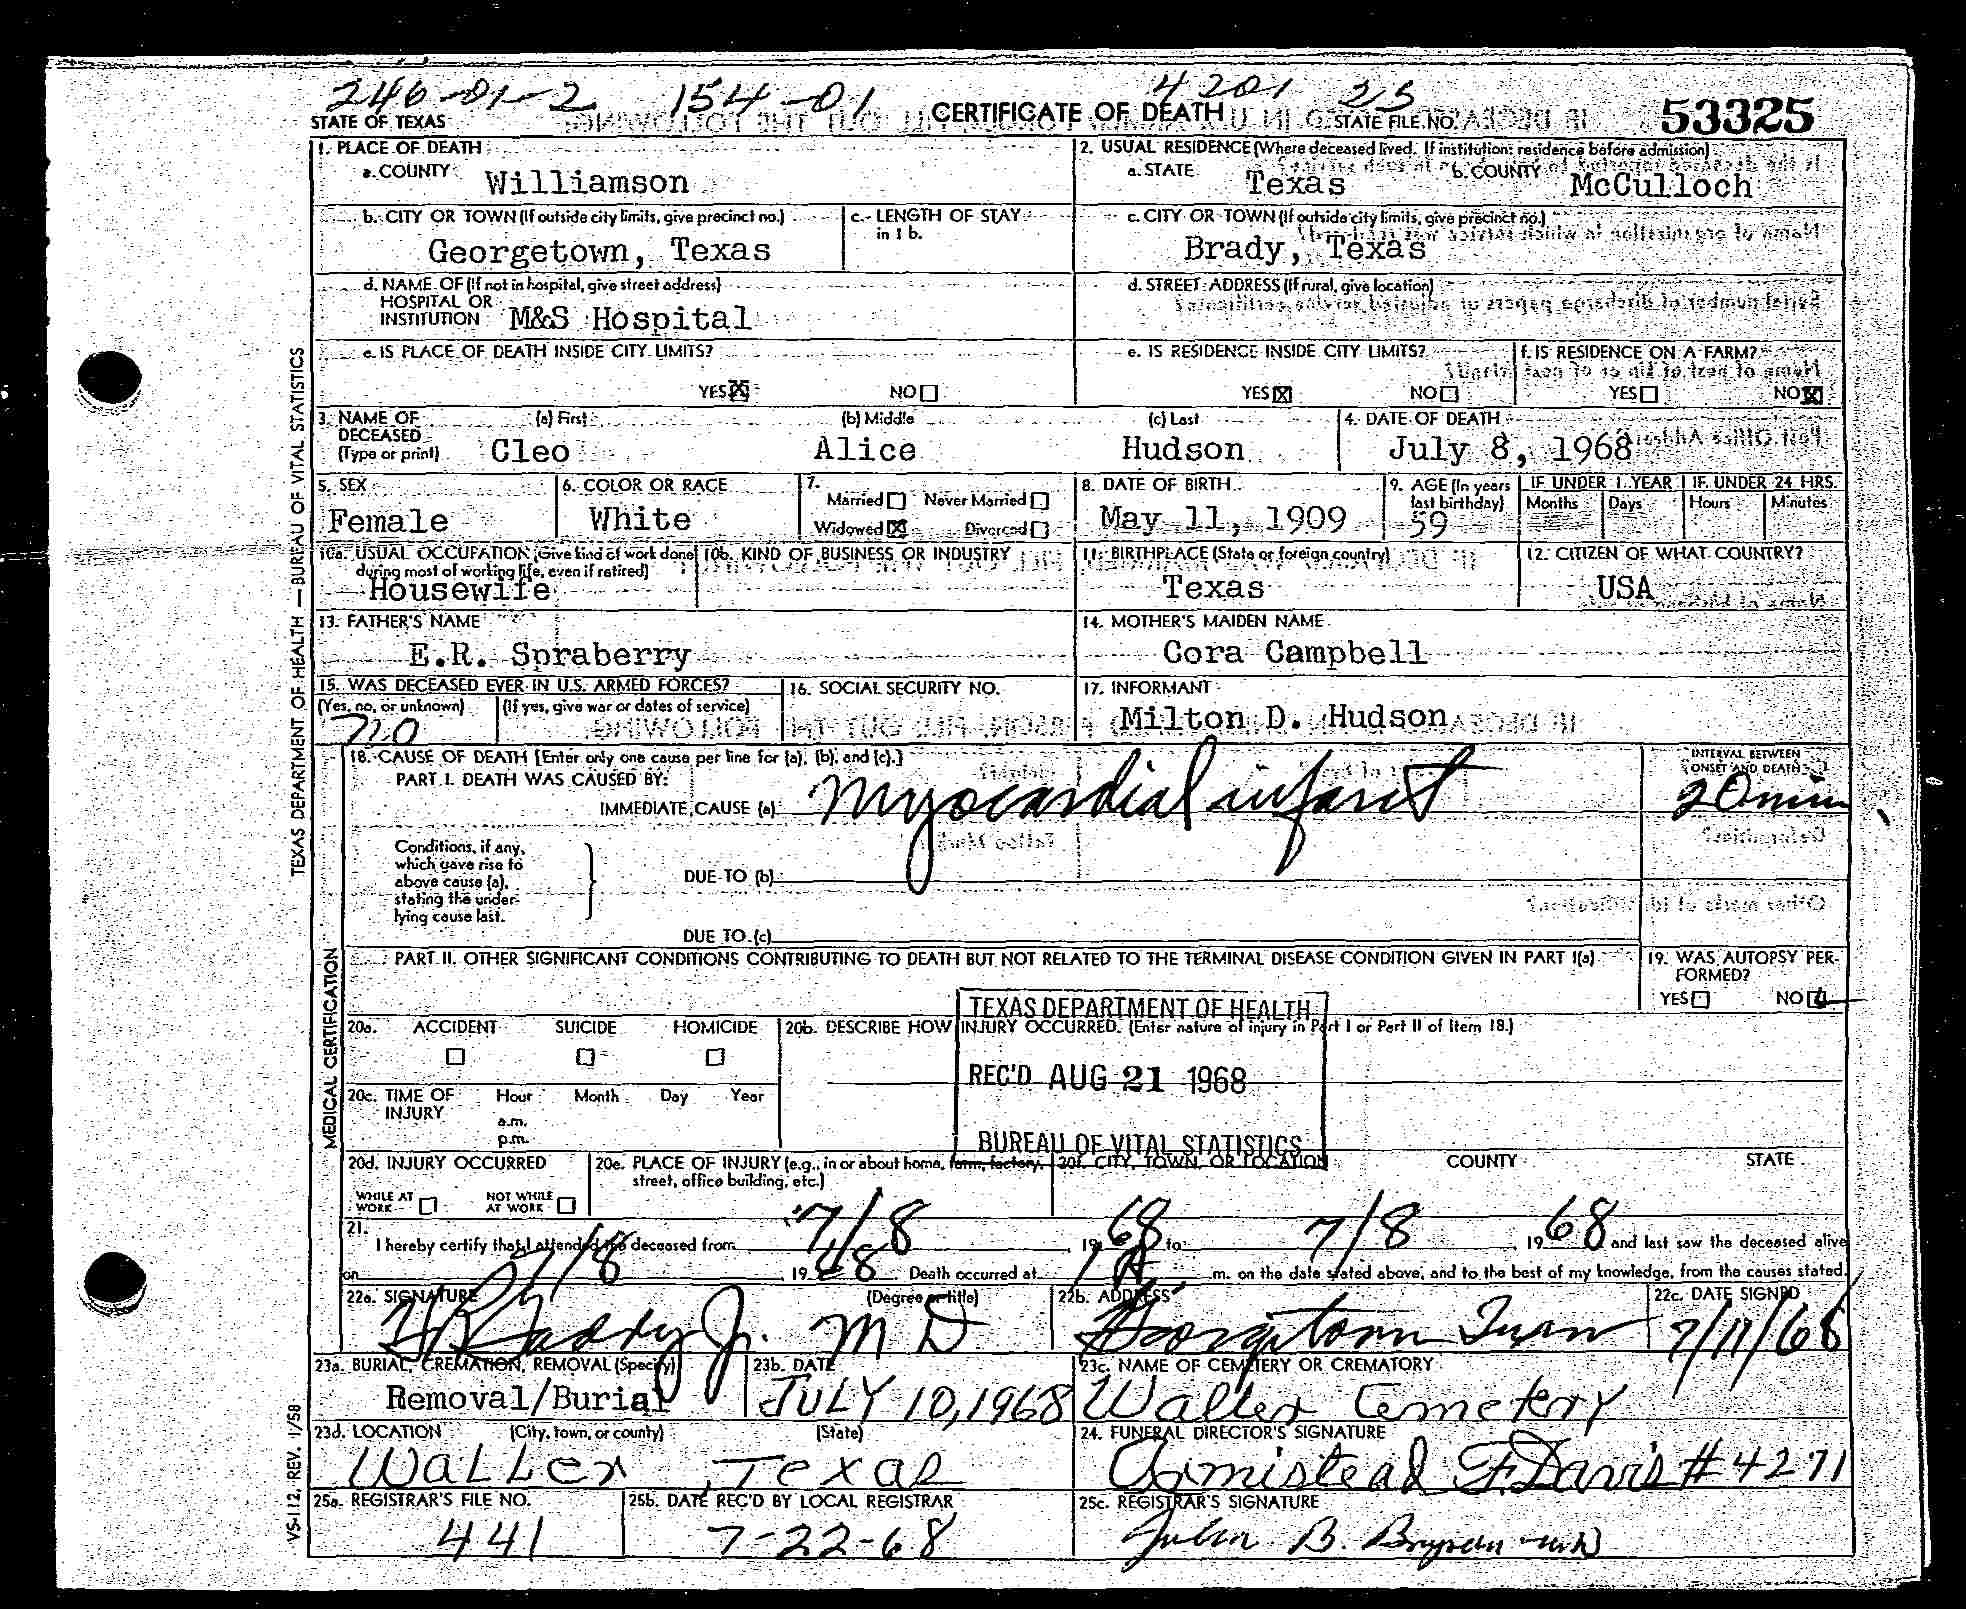 246-01-2 154-01 4201 25
STATE OF TEXAS CERTIFICATE OF DEATH STATE FILE NO. 53325
1. PLACE OF DEATH
a. COUNTY Williamson
2. USUAL RESIDENCE (Where deceased lived. If institution: residence before admission)
a. STATE Texas b. COUNTY McCulloch
b. CITY OR TOWN (If outside city limits, give precinct no.) Georgetown, Texas
c. LENGTH OF STAY in 1 b.
c. CITY OR TOWN (If outside city limits, give precinct no.) Brady, Texas
d. NAME OF (If not in hospital, give street address)
HOSPITAL OR
INSTITUTION M&S Hospital
d. STREET ADDRESS (If rural, give location)
e. IS PLACE OF DEATH INSIDE CITY LIMITS?
YES NO
e. IS RESIDENCE INSIDE CITY LIMITS?
YES NO
f. IS RESIDENCE ON A FARM?
YES NO
3. NAME OF DECEASED (Type or print)
(a) First (b) Middle (c) Last
Cleo Alice Hudson
4. DATE OF DEATH
July 8, 1968
5. SEX
Female
6. COLOR OR RACE
White
7.
Married Never Married
Widowed Divorced
8. DATE OF BIRTH
May 11, 1909
9. AGE (In years last birthday)
59
IF UNDER 1 YEAR IF UNDER 24 HRS.
Months Days Hours Minutes
10a. USUAL OCCUPATION (Give kind of work done during most of working life, even if retired)
Housewife
10b. KIND OF BUSINESS OR INDUSTRY
11. BIRTHPLACE (State or foreign country)
Texas
12. CITIZEN OF WHAT COUNTRY?
USA
13. FATHER'S NAME
E.R. Spraberry
14. MOTHER'S MAIDEN NAME
Cora Campbell
15. WAS DECEASED EVER IN U.S. ARMED FORCES?
(Yes, no, or unknown) (If yes, give war or dates of service)
no
16. SOCIAL SECURITY NO.
17. INFORMANT
Milton D. Hudson
18. CAUSE OF DEATH [Enter only one cause per line for (a), (b), and (c).]
PART I. DEATH WAS CAUSED BY:
IMMEDIATE CAUSE (a) Myocardial infarct
INTERVAL BETWEEN
ONSET AND DEATH
20 min
Conditions, if any,
which gave rise to
above cause (a),
stating the under-
lying cause last.
DUE TO (b)
DUE TO (c)
PART II. OTHER SIGNIFICANT CONDITIONS CONTRIBUTING TO DEATH BUT NOT RELATED TO THE TERMINAL DISEASE CONDITION GIVEN IN PART I(a)
19. WAS AUTOPSY PER-
FORMED?
YES NO
TEXAS DEPARTMENT OF HEALTH
REC'D AUG 21 1968
BUREAU OF VITAL STATISTICS
20a. ACCIDENT SUICIDE HOMICIDE
20b. DESCRIBE HOW INJURY OCCURRED. (Enter nature of injury in Part I or Part II of Item 18.)
20c. TIME OF INJURY
Hour Month Day Year
a.m.
p.m.
20d. INJURY OCCURRED
WHILE AT WORK NOT WHILE AT WORK
20e. PLACE OF INJURY (e.g., in or about home, farm, factory, street, office building, etc.)
20f. CITY, TOWN, OR LOCATION COUNTY STATE
21.
I hereby certify that I attended the deceased from 7/8 1968 to 7/8, 1968 and last saw the deceased alive
on 7/8 1968. Death occurred at 1 A m. on the date stated above, and to the best of my knowledge, from the causes stated.
22a. SIGNATURE (Degree or title)
Jr. M D
22b. ADDRESS
Georgetown Texas
22c. DATE SIGNED
7/11/68
23a. BURIAL, CREMATION, REMOVAL (Specify)
Removal/Burial
23b. DATE
JULY 10, 1968
23c. NAME OF CEMETERY OR CREMATORY
Waller Cemetery
23d. LOCATION (City, town, or county) (State)
Waller, Texas
24. FUNERAL DIRECTOR'S SIGNATURE
Armistead F. Davis #4271
25a. REGISTRAR'S FILE NO.
441
25b. DATE REC'D BY LOCAL REGISTRAR
7-22-68
25c. REGISTRAR'S SIGNATURE
B.
TEXAS DEPARTMENT OF HEALTH — BUREAU OF VITAL STATISTICS
MEDICAL CERTIFICATION
VS-112, REV. 1/58